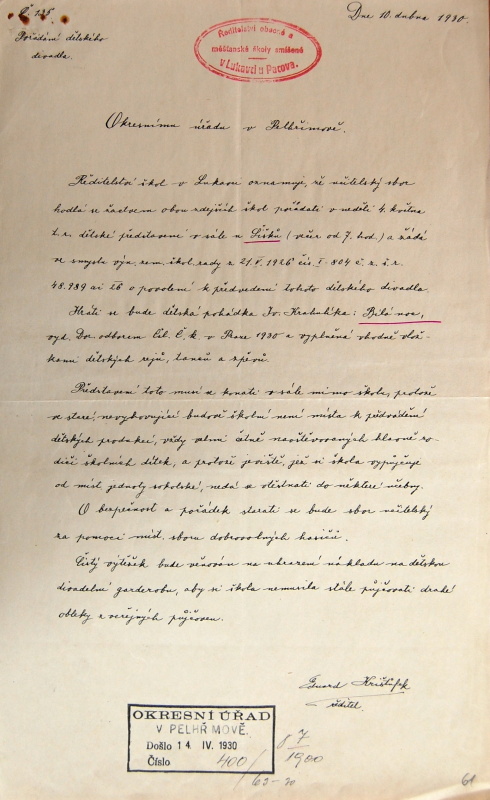 Č. 135
Dne 10. dubna 1930.
Pořádání dětského
divadla.
Ředitelství obecné a
měšťanské školy smíšené
v Lukavci u Pacova.
Okresnímu úřadu v Pelhřimově.
Ředitelství škol v Lukavci oznamuje, že učitelský sbor
hodlá se žactvem obou zdejších škol pořádati v neděli 4. května
t. r. dětské představení v sále u Šišků (večer od 7. hod.) a žádá
ve smyslu výn. zem. škol. rady z 21/V. 1926 čís. I-804 č. z. š. r.
48.989 ai 26 o povolení k předvedení tohoto dětského divadla.
Hráti se bude dětská pohádka Jo. Hrabníka: Bílá
vyd. Dor. odborem Čsl. Č. k. v Praze 1930 a vyplněná vhodně vlož-
kami dětských rejů, tanců a zpěvů.
Představení toto musí se konati v sále mimo školu, protože
ve staré, nevyhovující budově školní není místa k předvádění
dětských produkcí, vždy velmi četně navštěvovaných hlavně ro-
diči školních dítek, a protože jeviště, jež si škola vypůjčuje
od míst. jednoty sokolské, nedá se vtěsnati do některé učebny.
O bezpečnost a pořádek starati se bude sbor učitelský
za pomoci míst. sboru dobrovolných hasičů.
Čistý výtěžek bude věnován na uhrazení nákladu na dětskou
divadelní garderobu, aby si škola nemusila stále půjčovati drahé
obleky z veřejných půjčoven.
Eduard Krištůfek
ředitel.
OKRESNÍ ÚŘAD
V PELHŘIMOVĚ.
Došlo 14 IV. 1930
Číslo 400/
8 7/1900
62-20
61